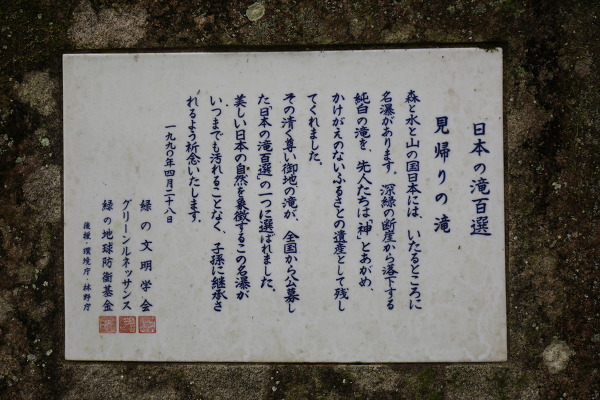 日本の滝百選
見帰りの滝
森と水と山の国日本には、いたるところに
名瀑があります。深緑の断崖から落下する
純白の滝を、先人たちは「神」とあがめ、
かけがえのないふるさとの遺産として残し
てくれました。
その清く尊い御地の滝が、全国から公募し
た「日本の滝百選」の一つに選ばれました。
美しい日本の自然を象徴するこの名瀑が
いつまでも汚れることなく、子孫に継承さ
れるよう祈念いたします。
一九九〇年四月二十八日
緑の文明学会
グリーンルネッサンス
緑の地球防衛基金
後援・環境庁・林野庁